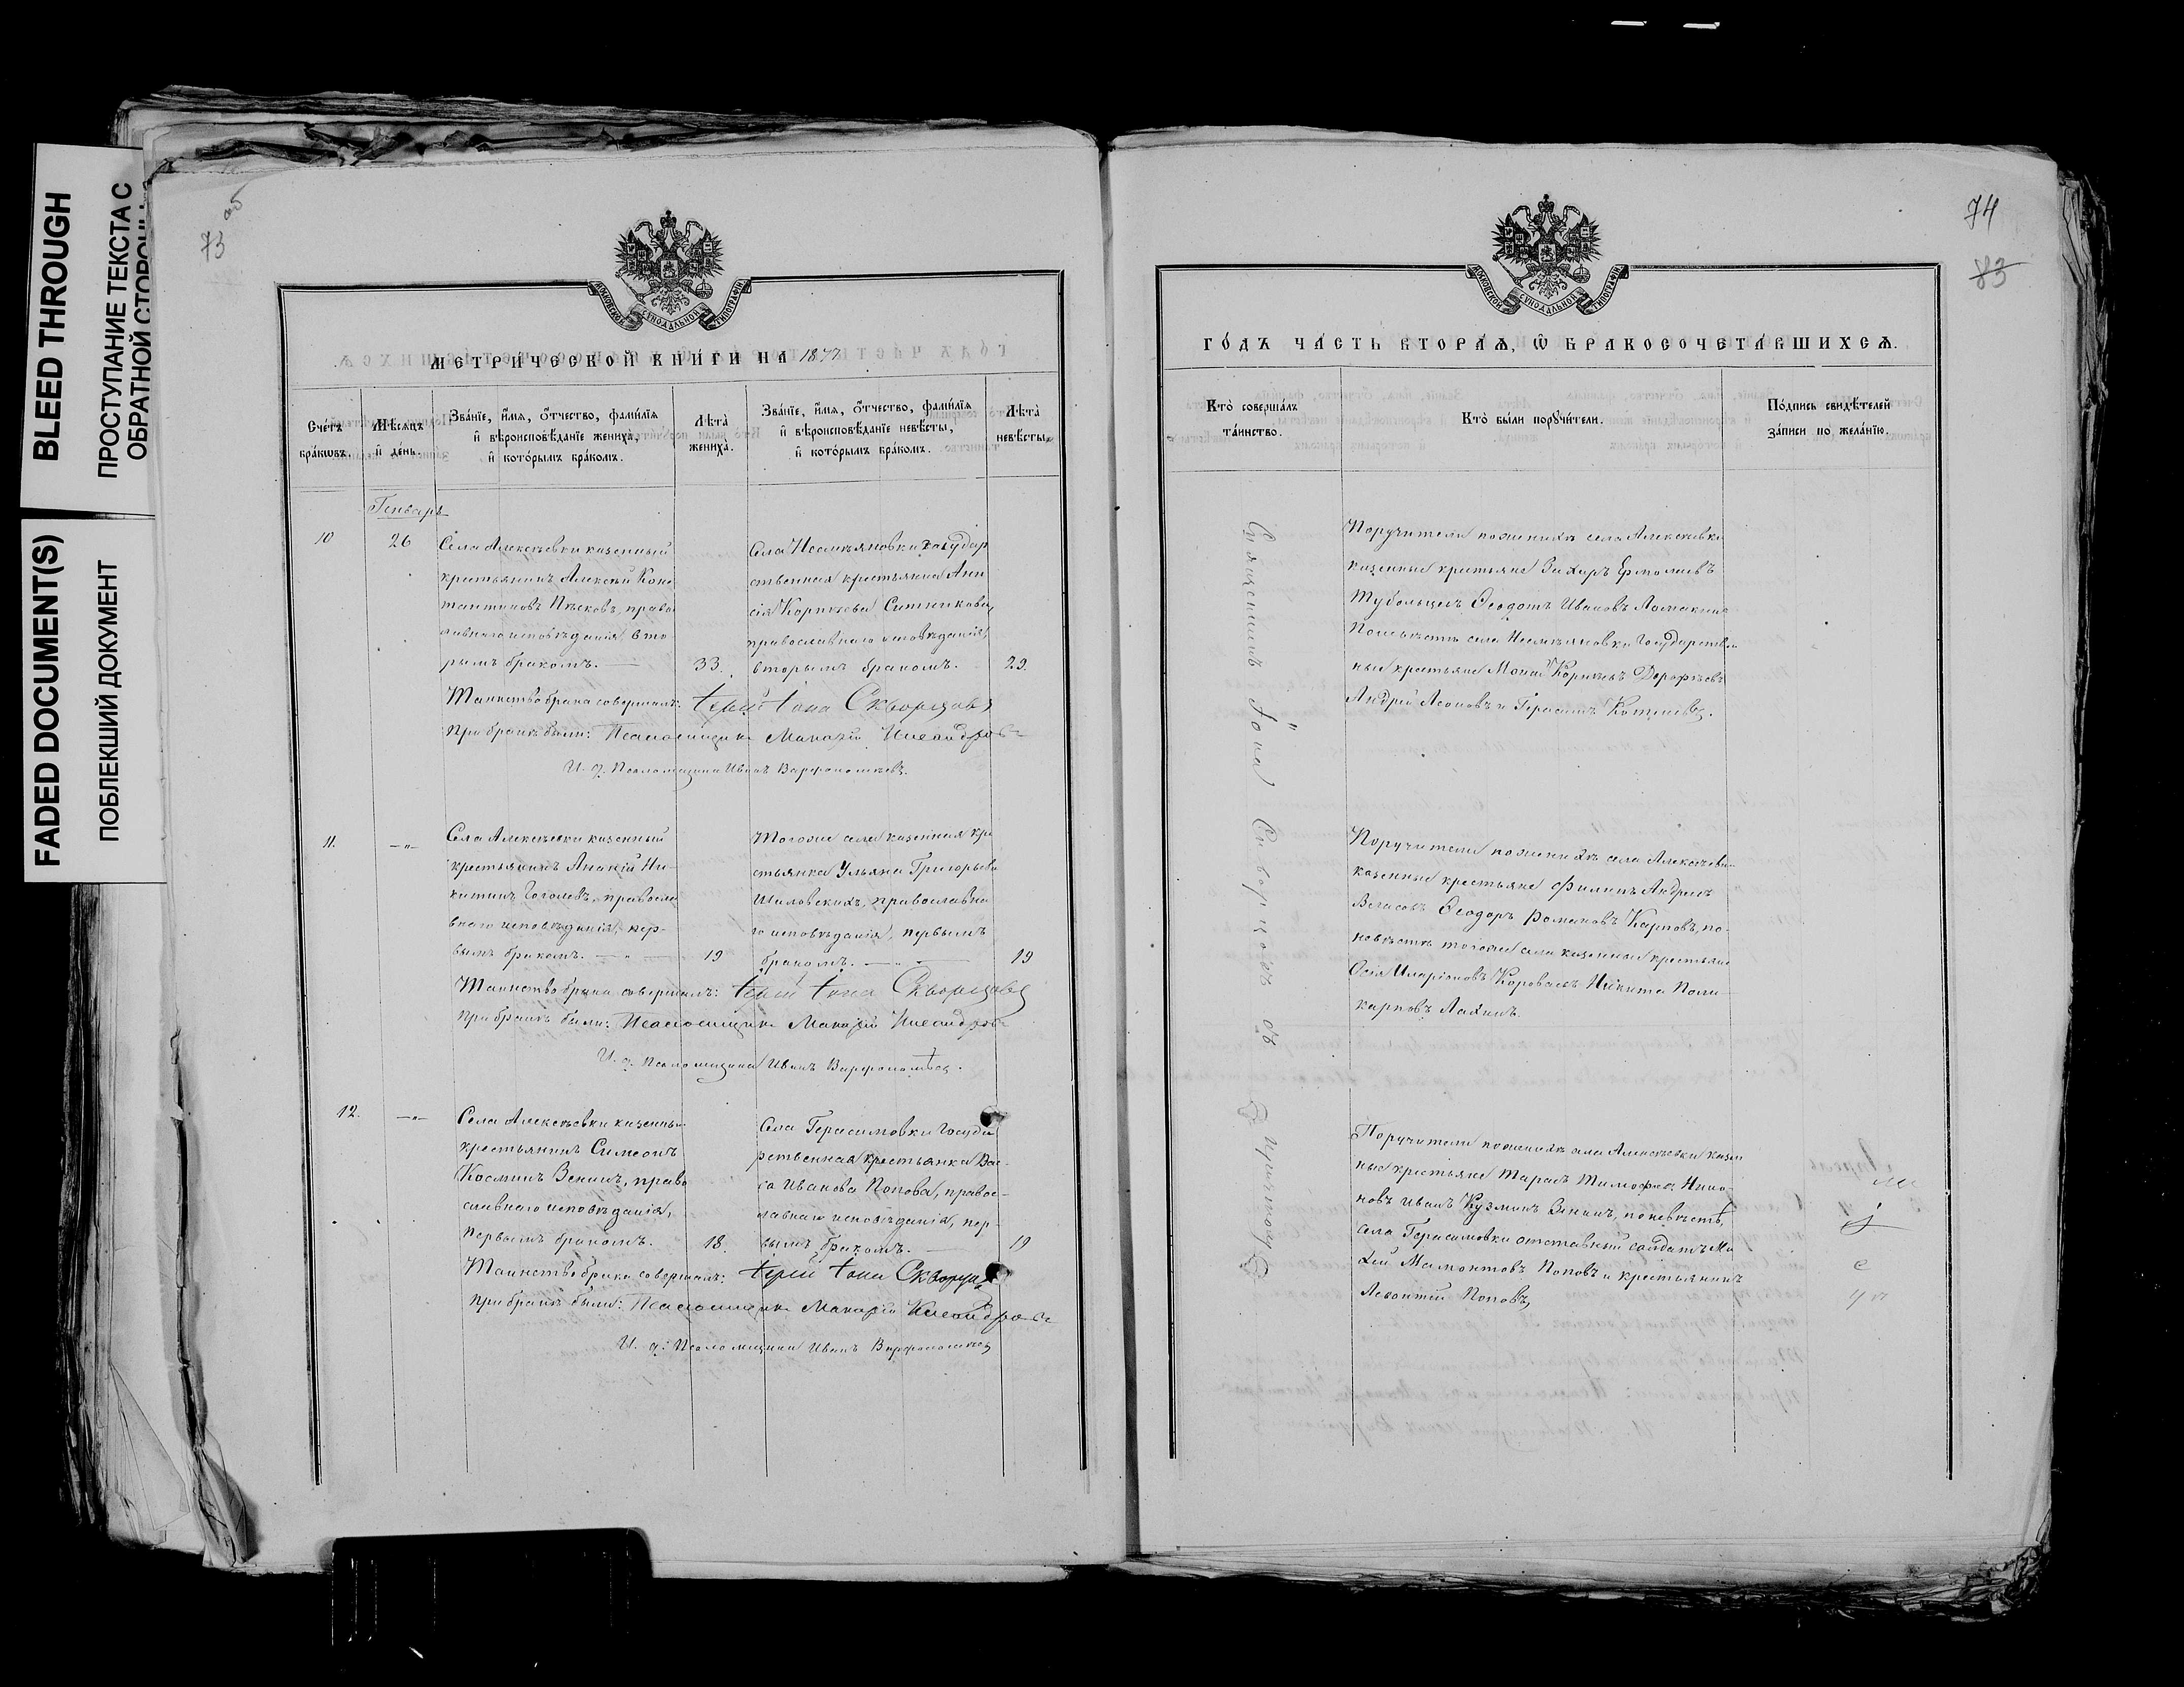 BLEED THROUGH
ПРОСТУПАНИЕ ТЕКСТА С
ОБРАТНОЙ СТОРОНЫ
FADED DOCUMENT(S)
ПОБЛЕКШИЙ ДОКУМЕНТ
73 об
МОСКОВСКОЙ СѴНОДАЛЬНОЙ ТИПОГРАФІИ
МЕТРИЧЕСКОЙ КНИГИ НА 1877
Счетъ браковъ.
Мѣсяцъ и день.
Званіе, имя, отчество, фамилія
и вѣроисповѣданіе жениха,
и которымъ бракомъ.
Лѣта жениха.
Званіе, имя, отчество, фамилія
и вѣроисповѣданіе невѣсты,
и которымъ бракомъ.
Лѣта невѣсты.
Генварь
10
26
Села Алексѣевки казенный
крестьянинъ Алексѣй Конс
тантиновъ Пѣсковъ, право
славнаго исповѣданія вто
рымъ бракомъ.
33.
государ
ственная крестьянка
Ситникова,
православнаго исповѣданія,
вторымъ бракомъ.
29.
Таинство брака совершалъ: Іерей Іона Скворцовъ
При бракѣ были: Псаломщикъ Макарій
И. д. Псаломщика Иванъ Варфоломеевъ.
11.
Села Алексѣевки казенный
крестьянинъ Ананій Ни-
китинъ Гоголевъ, правосла
внаго исповѣданія, пер-
вымъ бракомъ.
19
Тогоже села казенная кре
стьянка Ульяна Григорьева
Шиловскихъ, православна
го исповѣданія, первымъ
бракомъ.
19
Таинство брака совершалъ: Іерей Іона Скворцовъ
При бракѣ были: Псаломщикъ Макарій
И. д. Псаломщика Иванъ Варфоломѣев.
12.
Села Алексѣевки казенный
крестьянинъ Симеонъ
Косминъ Зенинъ, право
славнаго исповѣданія,
первымъ бракомъ.
18.
Села Герасимовки Госуда
рственная крестьянка Вас-
са Иванова Попова, правос-
лавнаго исповѣданія, пер-
вымъ бракомъ.
19
Таинство брака совершалъ: Іерей Іона Скворцов
При бракѣ были: Псаломщикъ Макарій
И. д. Псаломщика Иванъ Варфоломеев
74
83
МОСКОВСКОЙ СѴНОДАЛЬНОЙ ТИПОГРАФІИ
ГОДЪ ЧАСТЬ ВТОРАЯ, Ѡ БРАКОСОЧЕТАВШИХСЯ.
Кто совершалъ
таинство.
Кто были поручители.
Подпись свидѣтелей
записи по желанію.
Священникъ Іона Скворцовъ съ Причтомъ
Поручители по женихѣ села Алексѣевки
казенные крестьяне Захаръ Ермолаевъ
Ѳеодотъ Ивановъ Ломакинъ
По невѣстѣ села Государствен
ные крестьяне Дорофѣевъ
Андрей Леоновъ и Герасимъ
Поручители по женихѣ села Алексѣевки
казенные крестьяне Филипъ Андреевъ
Власовъ Ѳеодоръ Романовъ Карповъ, по
невѣстѣ тогоже села казенные крестьяне
Осія Иларіоновъ Короваевъ Никита Поли
карповъ Лахинъ.
Поручители по женихѣ села Алексѣевки казен
ные крестьяне Тарасъ Тимофеев
Иванъ Кузминъ Зенинъ, по невѣстѣ,
села Герасимовки отставный солдатъ Ми
хей Мамонтовъ Поповъ и крестьянинъ
Леонтій Поповъ